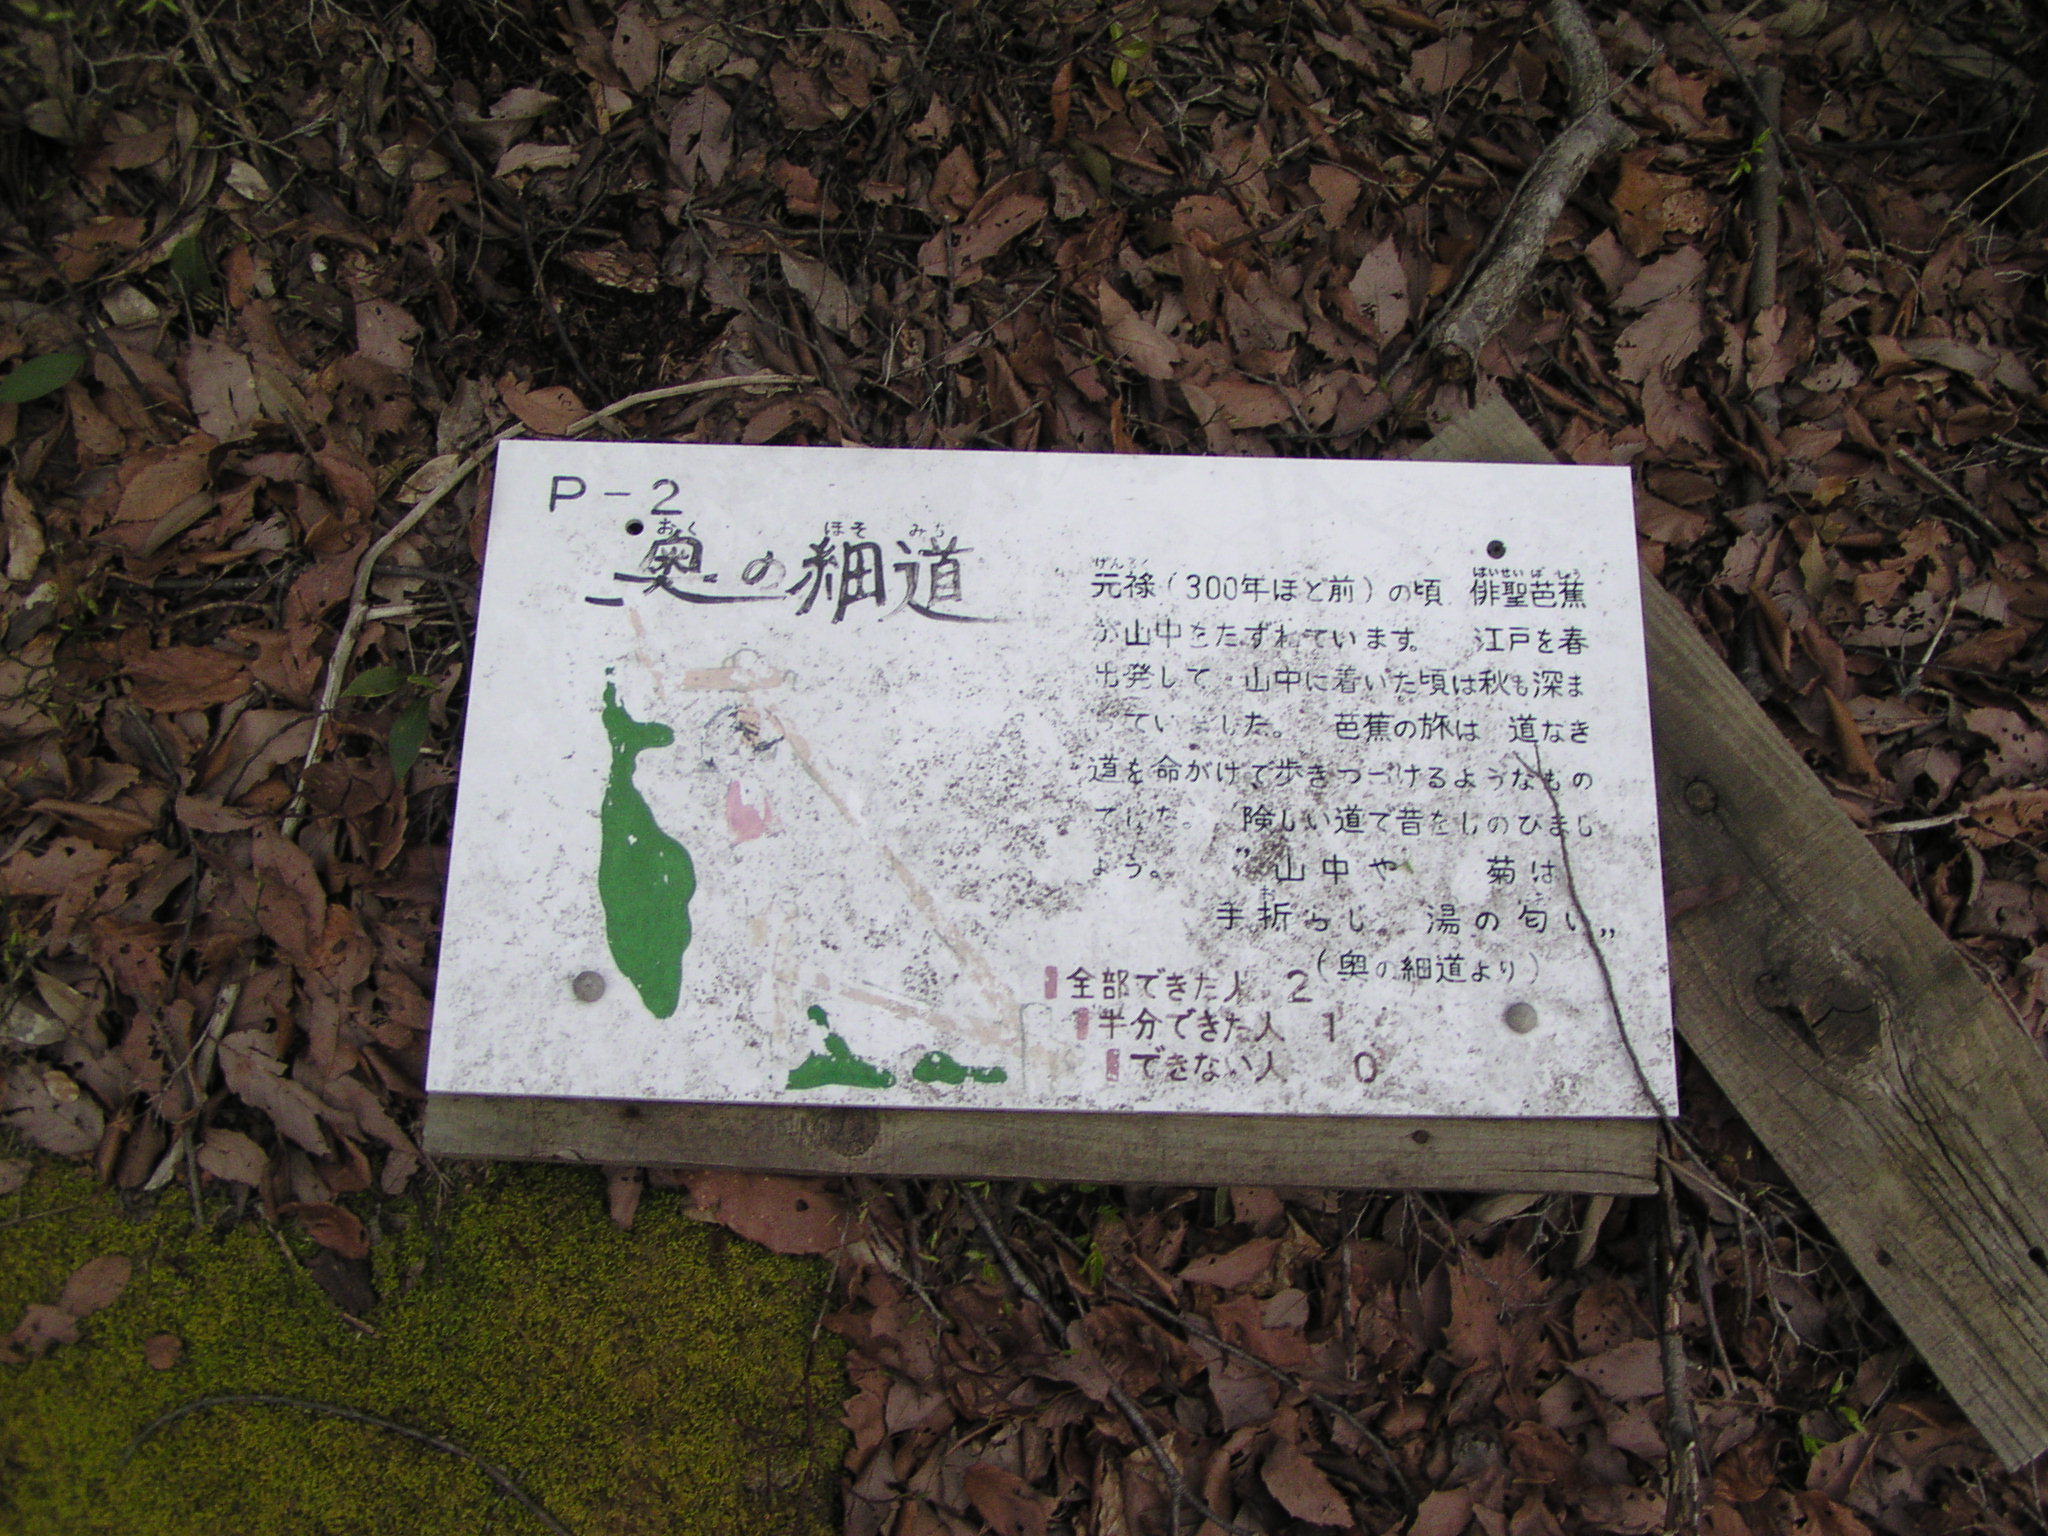 P-2
おく ほそ みち
奥の細道
げんろく はいせい ばしょう
元禄(300年ほど前)の頃 俳聖芭蕉
が山中をたずねています。 江戸を春
出発して 山中に着いた頃は秋も深ま
っていました。 芭蕉の旅は 道なき
道を命がけで歩きつづけるようなもの
でした。 険しい道で昔をしのびまし
ょう。 〝山中や 菊は
手折らじ 湯の匂い〟
(奥の細道より)
全部できた人 2
半分できた人 1
できない人 0